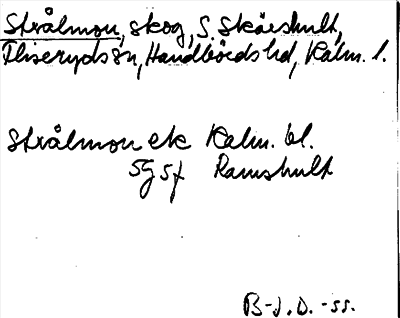 Strålmon, skog, S. Skärshult,
Fliseryds sn, Handbörds hd, Kalm. l.
Strålmon ek Kalm. bl.
5g5f Ramshult
B-J.D.-ss.